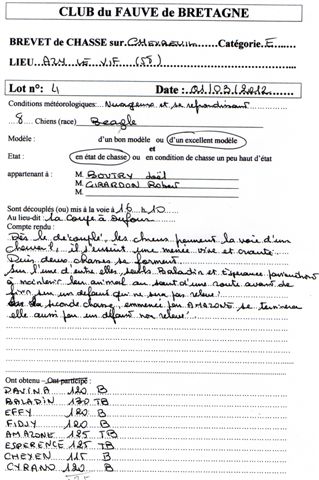 CLUB du FAUVE de BRETAGNE
BREVET de CHASSE sur CHEVREUIL Catégorie E
LIEU AZY LE VIF (58)
Lot n°: 4 Date : 01/03/2012
Conditions météorologiques: Nuageux et se refroidissant
8 Chiens (race) Beagle
Modèle : d'un bon modèle ou d'un excellent modèle
et
Etat : en état de chasse ou en condition de chasse un peu haut d'état
appartenant à : M. BOUTRY Joël
M. GIRARDON Robert
M.
Sont découplés (ou) mis à la voie à 16 h 10
Au lieu-dit : La Coupe à Dufour
Compte rendu :
Dès le découplé, les chiens prennent la voie d'un
chevreuil, il s'ensuit une menée vive et criante.
Puis, deux chasses se forment.
Sur l'une d'entre elle, seuls Baladin et Espérance parviendront
à maintenir leur animal au saut d'une route avant de
finir sur un défaut qui ne sera pas relevé.
La seconde chasse, emmenée par AMAZONE se terminera
elle aussi par un défaut non relevé.
Ont obtenu – Ont participé :
DAVINA 120 B
BALADIN 130 TB
EFFY 120 B
FIDJY 120 B
AMAZONE 125 TB
ESPERENCE 125 TB
CHEYEN 115 B
CYRANO 120 B